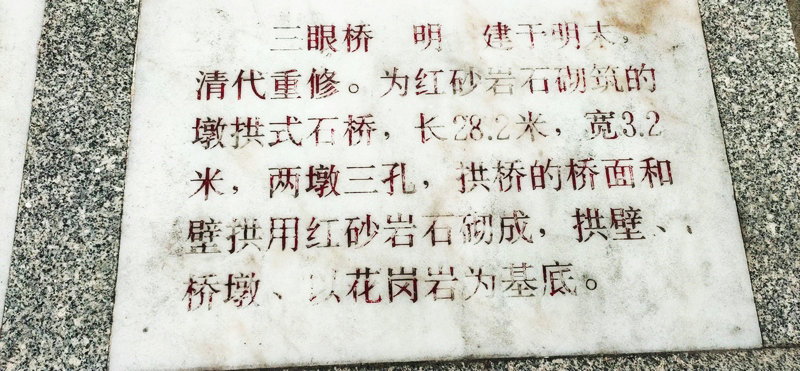 三眼桥 明 建于明末，
清代重修。为红砂岩石砌筑的
墩拱式石桥，长28.2米，宽3.2
米，两墩三孔，拱桥的桥面和
壁拱用红砂岩石砌成，拱壁、
桥墩、以花岗岩为基底。